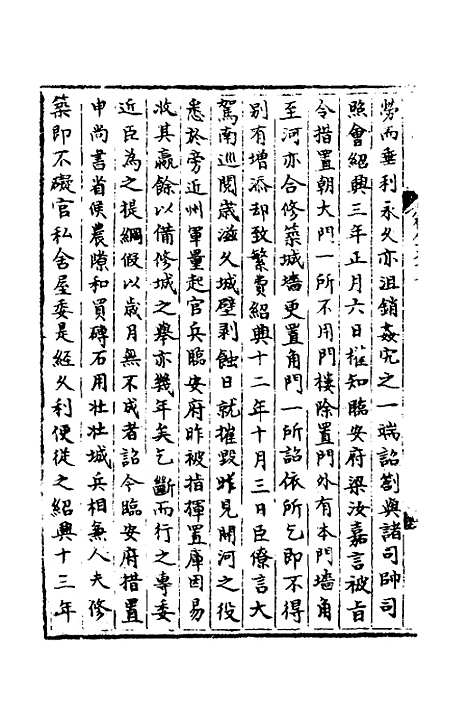 勞而垂利永久亦沮銷姦宄之一端詔劄與諸司帥司
照會紹興三年正月六日權知臨安府梁汝嘉言被旨
令措置朝大門一所不用門樓除置門外有本門墻角
至河亦合修築城墻更置角門一所詔依所乞即不得
別有增添却致繁費紹興十二年十月三日臣僚言大
駕南巡閱歲滋久城壁剥蝕日就摧毀昨見開河之役
悉於旁近州軍量起官兵臨安府昨被指揮置庫因易
收其贏餘以備修城之舉亦幾年矣乞斷而行之專委
近臣為之提綱假以歲月無不成者詔令臨安府措置
申尚書省候農隙和買磚石用壮壮城兵相兼人夫修
築即不礙官私舍屋委是經久利便從之紹興十三年